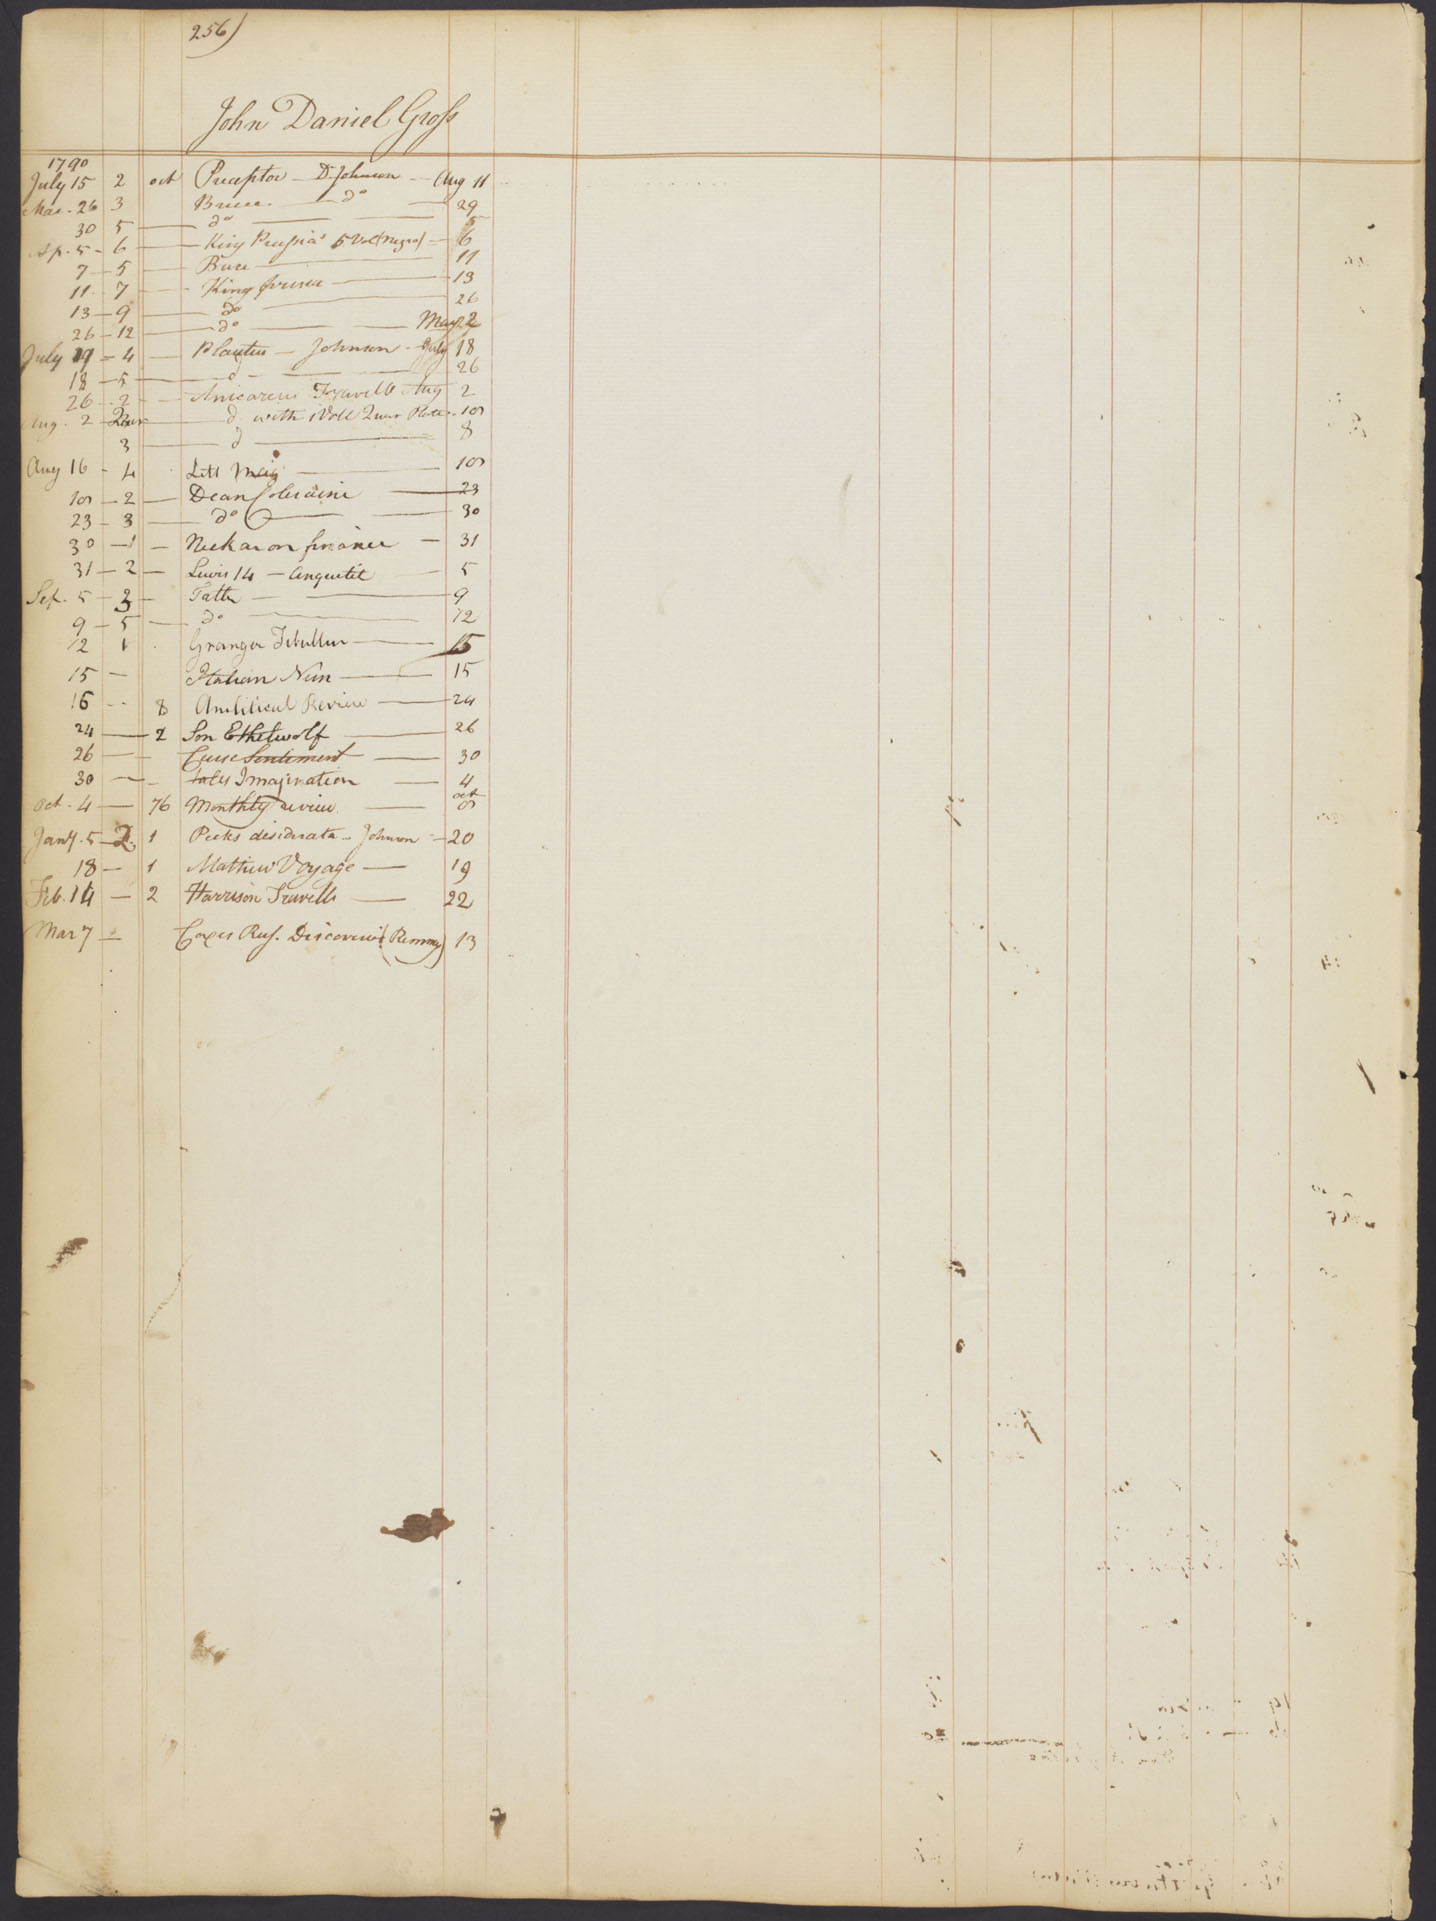 256)
John Daniel Gross
1790
July 15 2 oct Preceptor — Dr. Johnson — Aug 11
Mar. 26 3 Bruce — do — 29
30 5 — do — 5
Ap. 5 - 6 — King Prussias 5 Vol (Negro) — 6
7 - 5 — Buce — 11
11 - 7 — King prusia — 13
13 - 9 — do — 26
26 - 12 — do — May 2
July - 4 — Plautus — Johnson - July 18
18 - 5 — d — 26
26 - 2 — Anicarcus Travells Aug 2
Aug. 2 — d with 1 Voll Plates - 10
3 — d — 8
Aug 16 - 4 Litt Mag — 10
10 - 2 — Dean Coleraine — 23
23 - 3 — do — 30
30 - 1 — Neckar on finance — 31
31 - 2 — Lewis 14 — Anquetil — 5
Sep. 5 - 3 — Tatler — 9
9 - 5 — do — 12
12 1 Granger Tibullus — 15
15 — Italian Nun — 15
16 - 8 Anilitical Review — 24
24 — 2 Son Ethelwolf — 26
26 — Sentiment — 30
30 — Imagination — 4
Oct. 4 — 76 Monthly review — oct
Jany. 5 - 2. 1 Peeks disiderata — Johnson — 20
18 — 1 Mathew Voyage — 19
Feb. 14 — 2 Harrison Travells — 22
Mar 7 — Coxes Rus. Discoveries (Remmy) 13